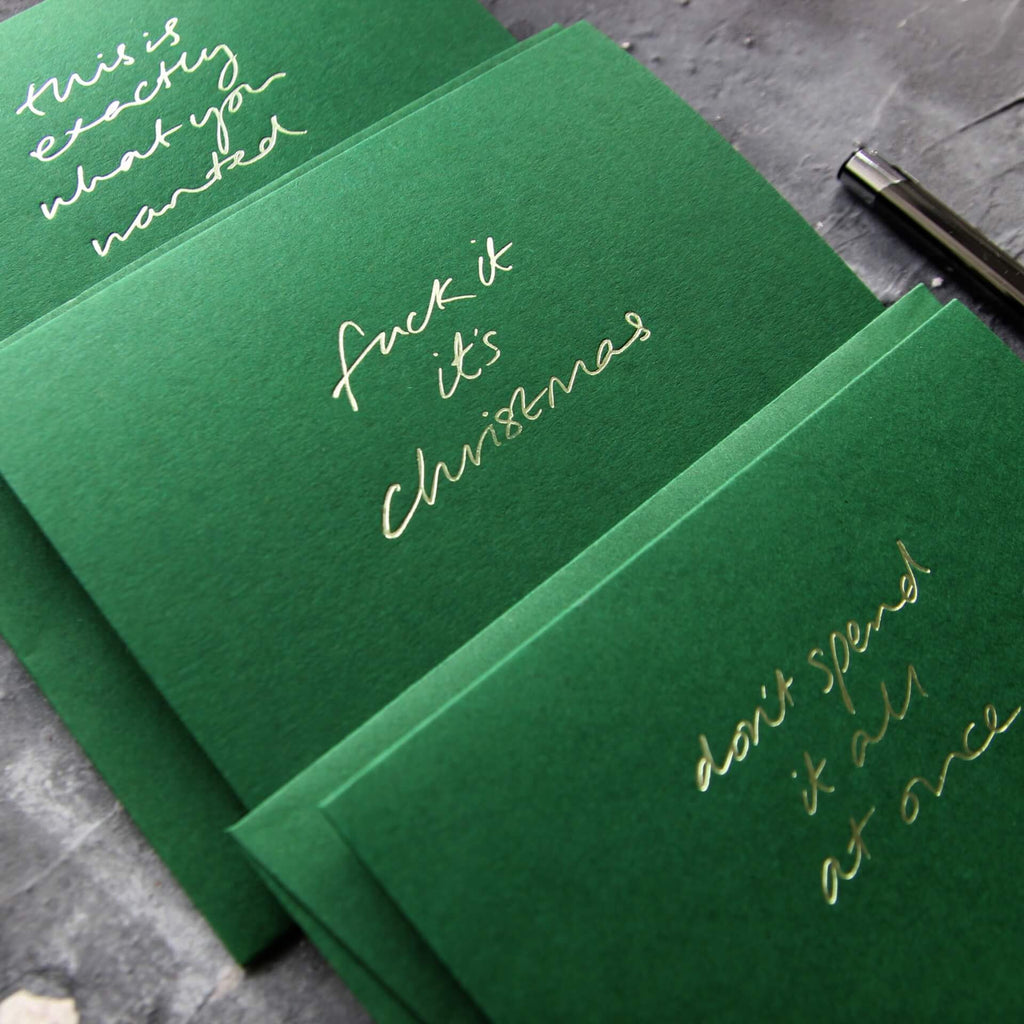 this is
exactly
what you
wanted
fuck it
it's
christmas
don't spend
it all
at once